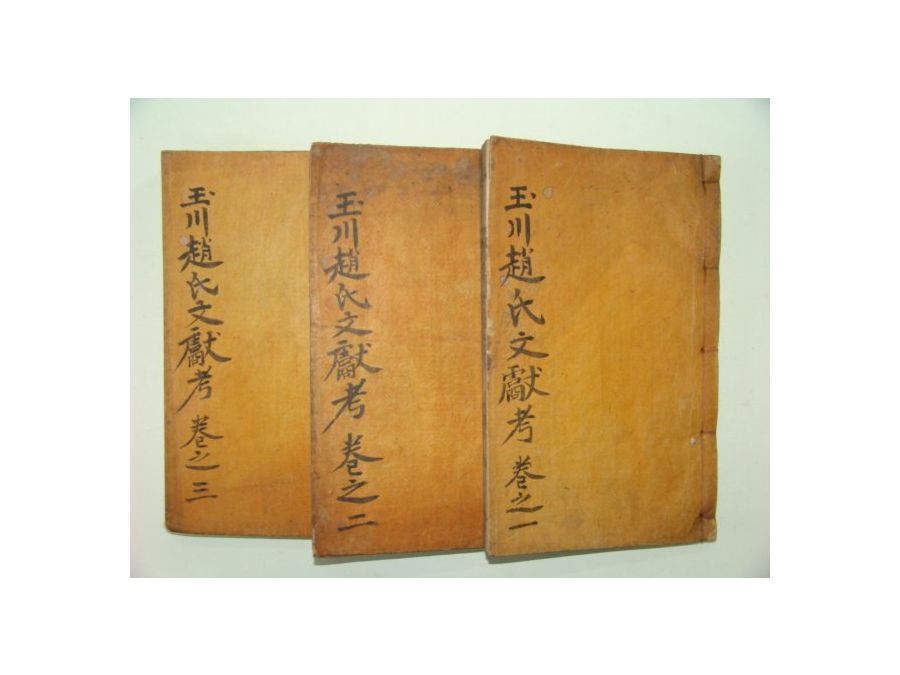 玉川趙氏文獻考 卷之一
玉川趙氏文獻考 卷之二
玉川趙氏文獻考 卷之三